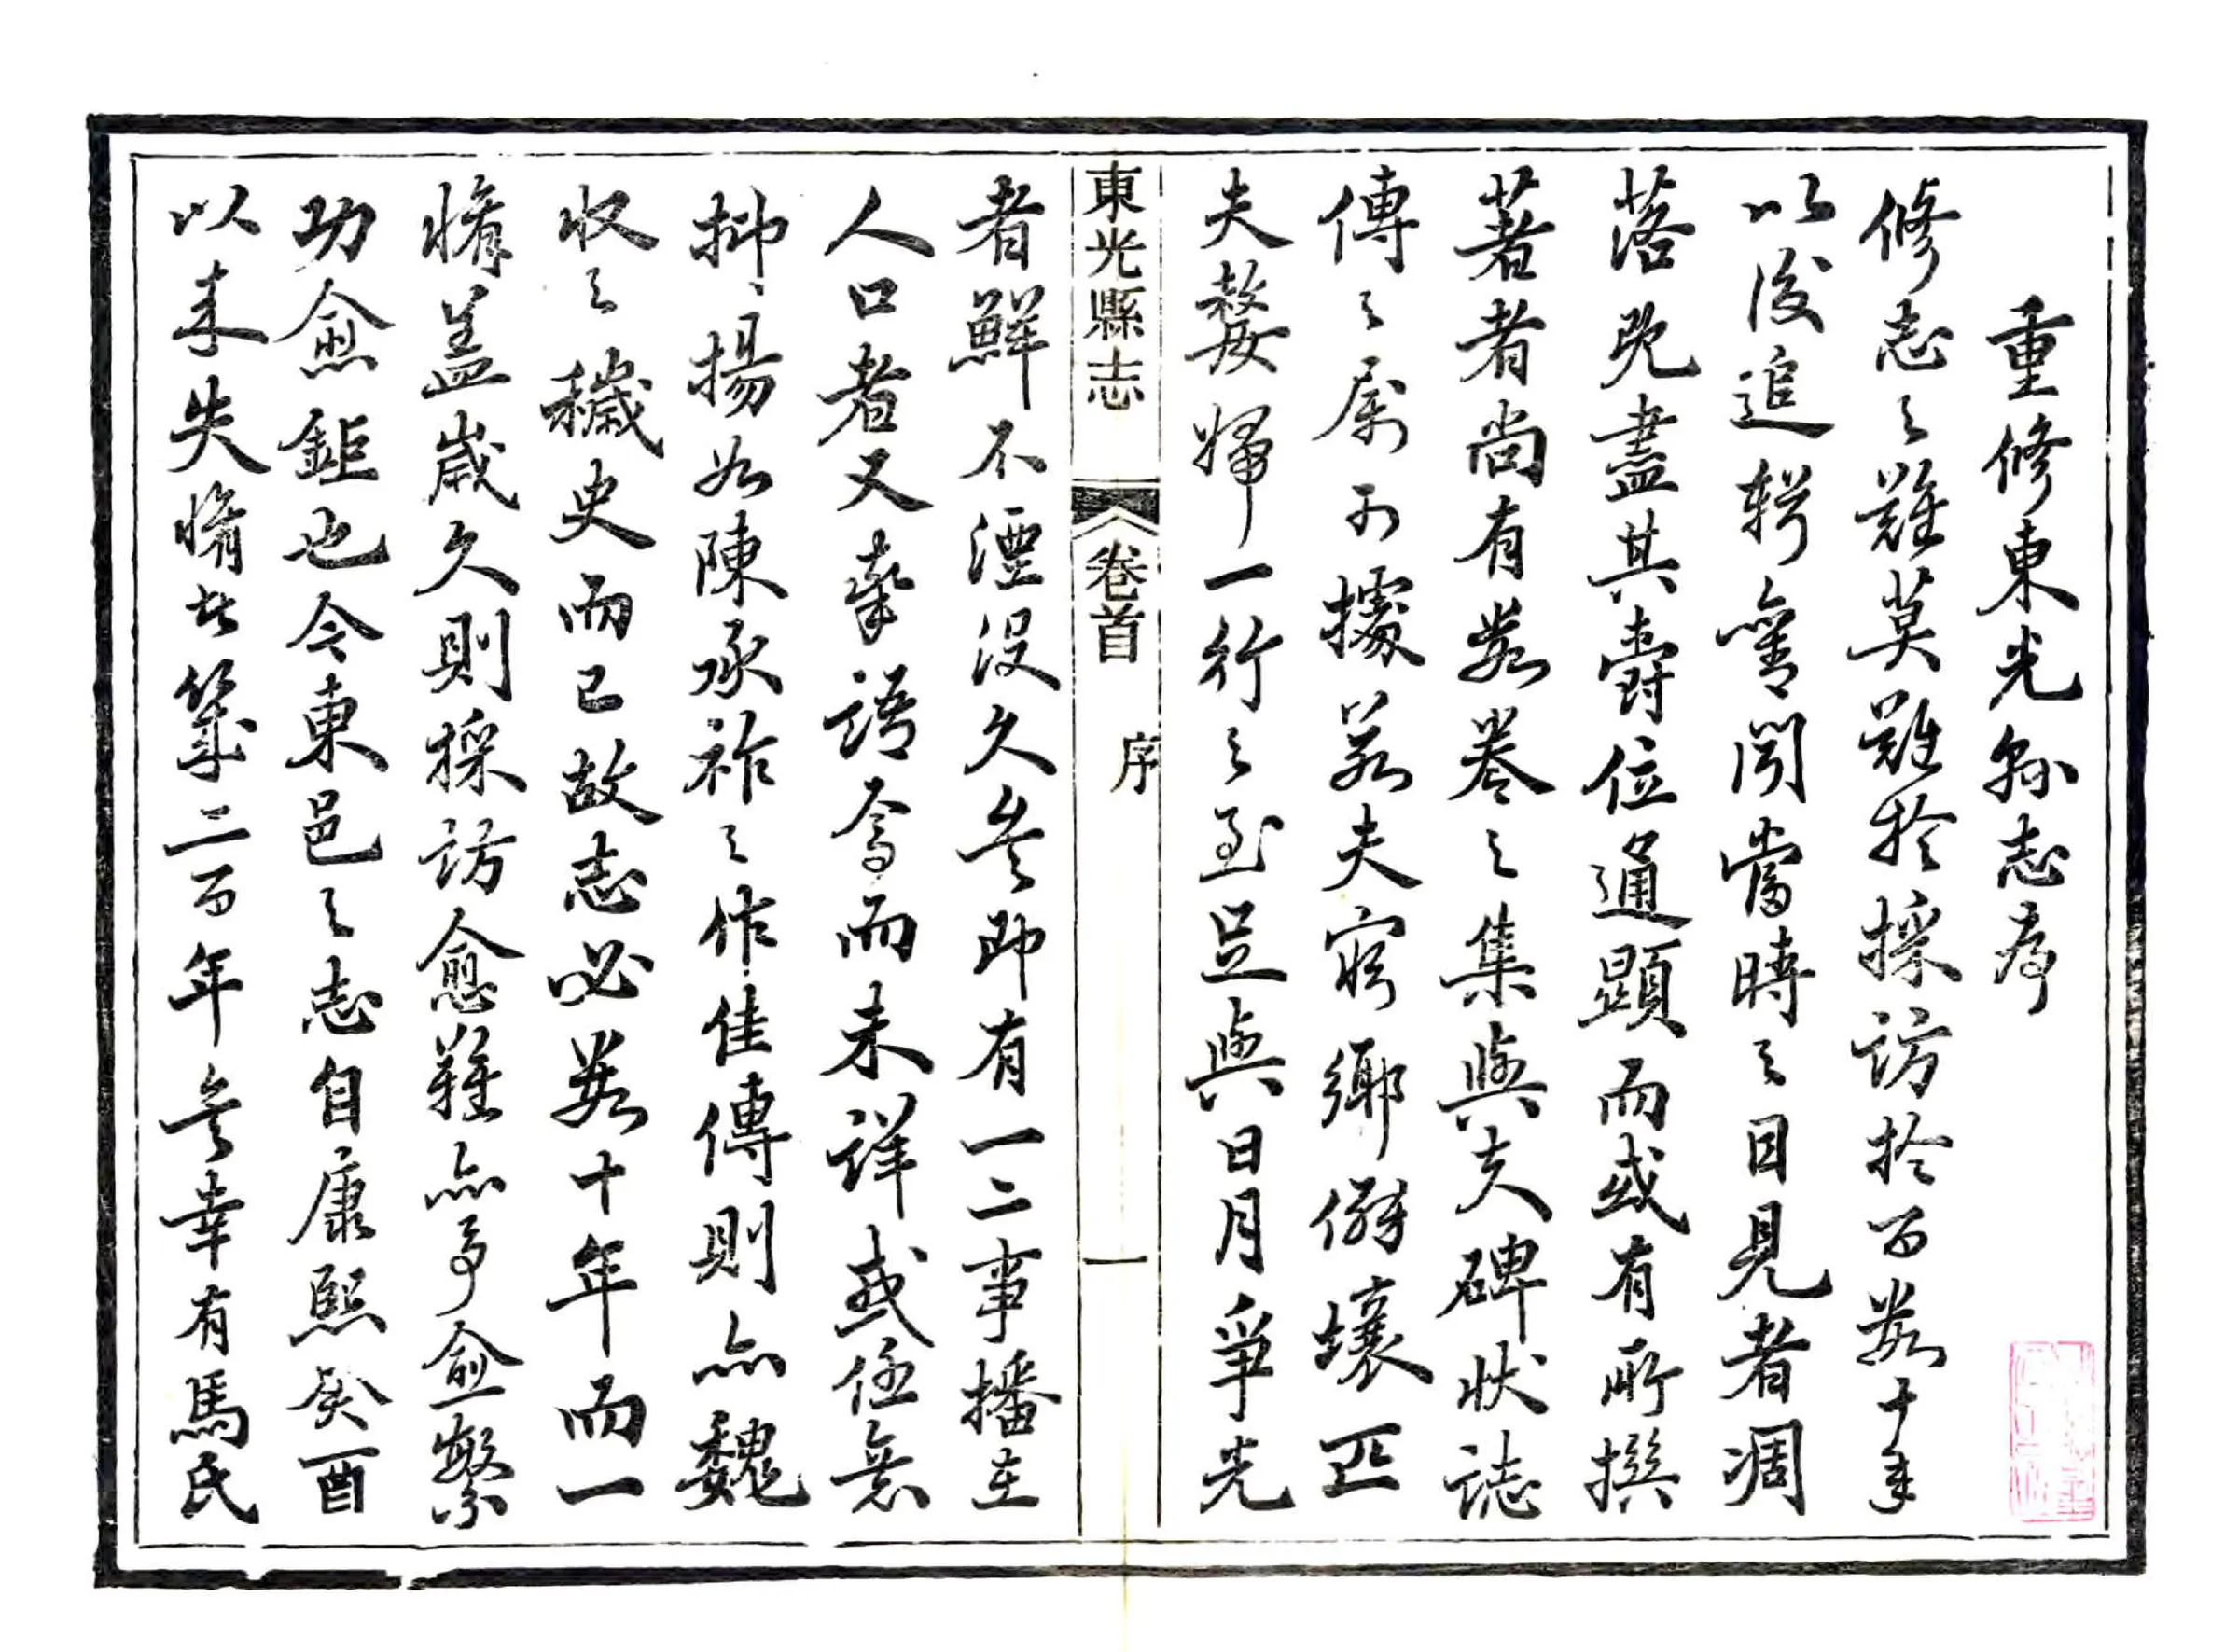 重修東光縣志序
修志之難莫難於採訪於百數十年
以後追輯舊聞當時之目見者凋
落既盡其爵位通顯而或有所撰
著者尚有數卷之集與夫碑狀誌
傳之屬可據若夫窮鄉僻壤匹
夫嫠婦一行之至足與日月爭光
東光縣志 卷首 序 一
者鮮不湮沒久矣即有一二事播在
人口者又華語焉而未詳或任意
抑揚如陳承祚之作佳傳則亦魏
收之穢史而已故志必數十年而一
脩盖歲久則採訪愈難亦事愈繁
功愈鉅也今東邑之志自康熙癸酉
以來失脩者幾二百年矣幸有馬氏